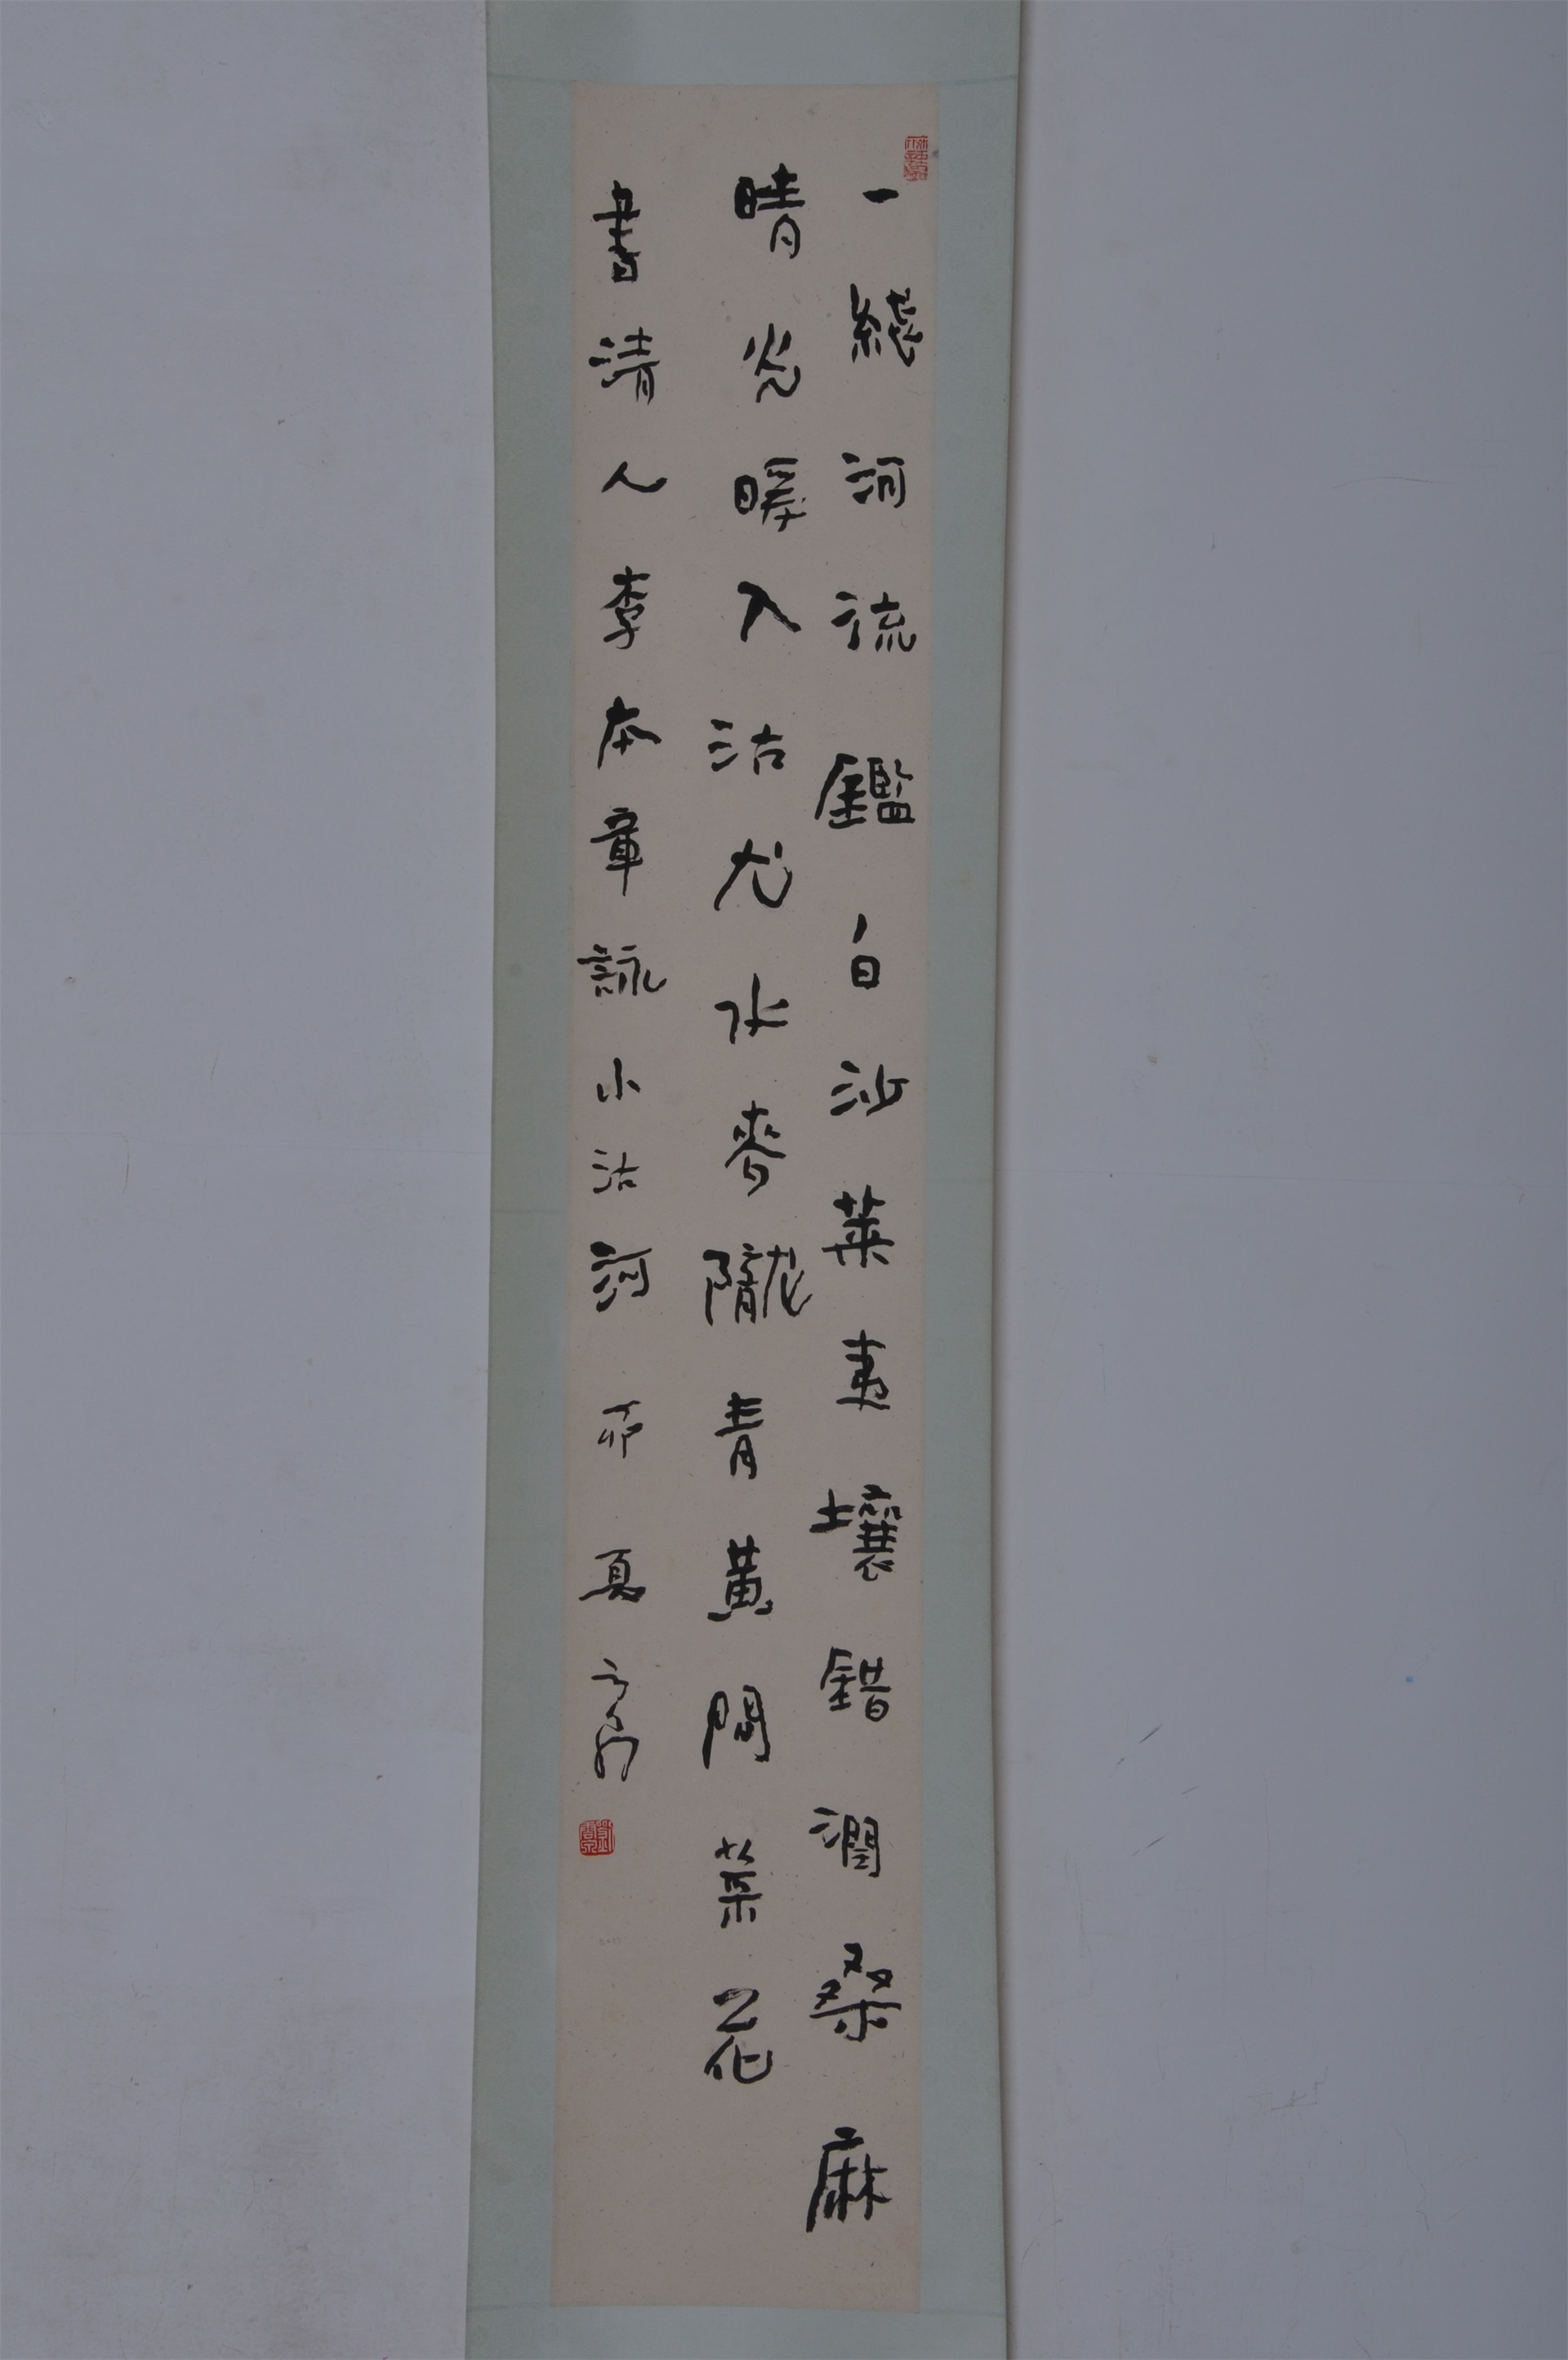 一綫河流鑑白沙萊夷壤錯潤桑麻
晴光暖入沽尤水麥隴青黃間菜花
書清人李本章詠小沽河 夏